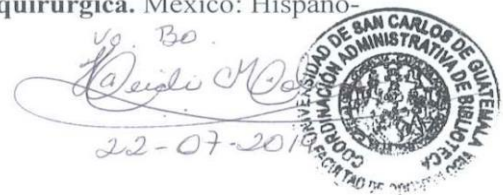 quirúrgica. México: Hispano-
Vo. Bo.
22-07-2019
UNIVERSIDAD DE SAN CARLOS DE GUATEMALA
COORDINACIÓN ADMINISTRATIVA DE BIBLIOTECA
FACULTAD DE